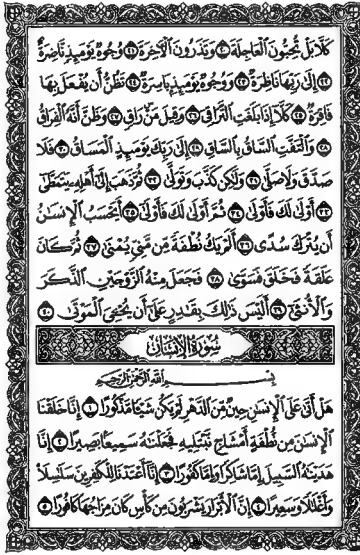 كَلَّا بَلْ تُحِبُّونَ ٱلْعَاجِلَةَ ٢٠ وَتَذَرُونَ ٱلْـَٔاخِرَةَ ٢١ وُجُوهٌ يَوْمَئِذٍ نَّاضِرَةٌ
٢٢ إِلَىٰ رَبِّهَا نَاظِرَةٌ ٢٣ وَوُجُوهٌ يَوْمَئِذٍۭ بَاسِرَةٌ ٢٤ تَظُنُّ أَن يُفْعَلَ بِهَا
فَاقِرَةٌ ٢٥ كَلَّآ إِذَا بَلَغَتِ ٱلتَّرَاقِىَ ٢٦ وَقِيلَ مَنْ رَاقٍ ٢٧ وَظَنَّ أَنَّهُ ٱلْفِرَاقُ
٢٨ وَٱلْتَفَّتِ ٱلسَّاقُ بِٱلسَّاقِ ٢٩ إِلَىٰ رَبِّكَ يَوْمَئِذٍ ٱلْمَسَاقُ ٣٠ فَلَا
صَدَّقَ وَلَا صَلَّىٰ ٣١ وَلَٰكِن كَذَّبَ وَتَوَلَّىٰ ٣٢ ثُمَّ ذَهَبَ إِلَىٰٓ أَهْلِهِۦ يَتَمَطَّىٰٓ
٣٣ أَوْلَىٰ لَكَ فَأَوْلَىٰ ٣٤ ثُمَّ أَوْلَىٰ لَكَ فَأَوْلَىٰٓ ٣٥ أَيَحْسَبُ ٱلْإِنسَٰنُ
أَن يُتْرَكَ سُدًى ٣٦ أَلَمْ يَكُ نُطْفَةً مِّن مَّنِىٍّ يُمْنَىٰ ٣٧ ثُمَّ كَانَ
عَلَقَةً فَخَلَقَ فَسَوَّىٰ ٣٨ فَجَعَلَ مِنْهُ ٱلزَّوْجَيْنِ ٱلذَّكَرَ
وَٱلْأُنثَىٰٓ ٣٩ أَلَيْسَ ذَٰلِكَ بِقَٰدِرٍ عَلَىٰٓ أَن يُحْـِۧىَ ٱلْمَوْتَىٰ ٤٠
سُورَةُ الْإِنْسَانِ
بِسْمِ ٱللَّهِ ٱلرَّحْمَٰنِ ٱلرَّحِيمِ
هَلْ أَتَىٰ عَلَى ٱلْإِنسَٰنِ حِينٌ مِّنَ ٱلدَّهْرِ لَمْ يَكُن شَيْـًٔا مَّذْكُورًا ١ إِنَّا خَلَقْنَا
ٱلْإِنسَٰنَ مِن نُّطْفَةٍ أَمْشَاجٍ نَّبْتَلِيهِ فَجَعَلْنَٰهُ سَمِيعًۢا بَصِيرًا ٢ إِنَّا
هَدَيْنَٰهُ ٱلسَّبِيلَ إِمَّا شَاكِرًا وَإِمَّا كَفُورًا ٣ إِنَّآ أَعْتَدْنَا لِلْكَٰفِرِينَ سَلَٰسِلَا۟
وَأَغْلَٰلًا وَسَعِيرًا ٤ إِنَّ ٱلْأَبْرَارَ يَشْرَبُونَ مِن كَأْسٍ كَانَ مِزَاجُهَا كَافُورًا ٥